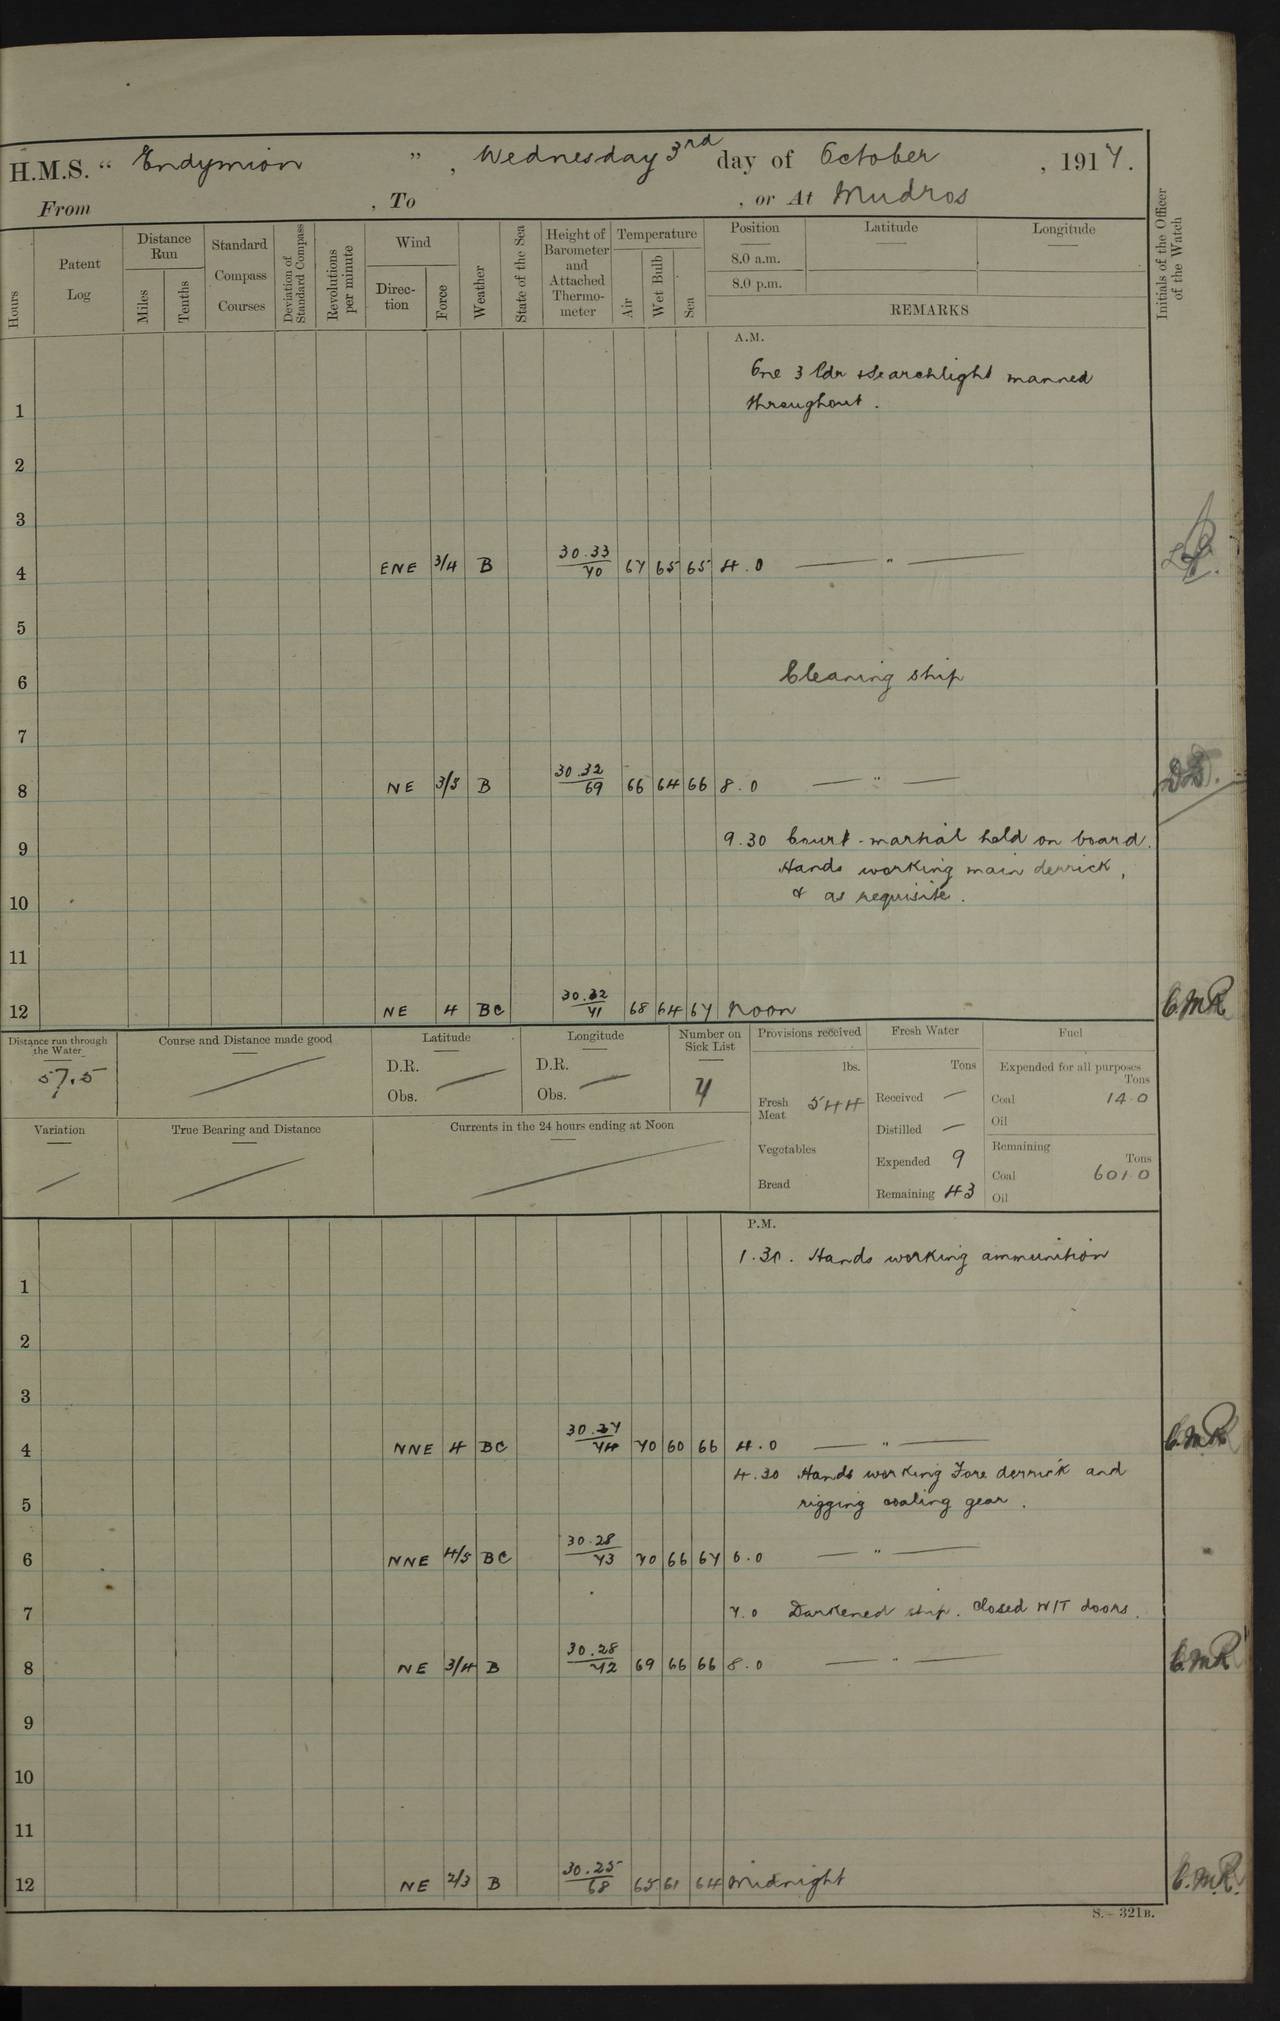 H.M.S. "Endymion", Wednesday 3rd day of October, 1917.
From , To , or At Mudros
Hours
Patent Log
Distance Run
Miles
Tenths
Standard Compass Courses
Deviation of Standard Compass
Revolutions per minute
Wind
Direction
Force
Weather
State of the Sea
Height of Barometer and Attached Thermometer
Temperature
Air
Wet Bulb
Sea
Position
8.0 a.m.
8.0 p.m.
Latitude
Longitude
REMARKS
Initials of the Officer of the Watch
A.M.
One 3 Pdr & Searchlight manned
1 throughout.
2
3
4 ENE 3/4 B 30.33/70 67 65 65 4.0 — " —
5
6 Cleaning ship
7
8 NE 3/5 B 30.32/69 66 64 66 8.0 — " —
9 9.30 Court-martial held on board.
Hands working main derrick,
10 & as requisite.
11
12 NE 4 BC 30.32/71 68 64 67 Noon C.M.R.
Distance run through the Water
57.5
Course and Distance made good
Latitude
D.R.
Obs.
Longitude
D.R.
Obs.
Number on Sick List
7
Provisions received
lbs.
Fresh Meat 544
Vegetables
Bread
Fresh Water
Tons
Received —
Distilled —
Expended 9
Remaining 43
Fuel
Expended for all purposes
Tons
Coal 14.0
Oil
Remaining
Tons
Coal 601.0
Oil
Variation
True Bearing and Distance
Currents in the 24 hours ending at Noon
P.M.
1.30. Hands working ammunition
1
2
3
4 NNE 4 BC 30.27/74 70 60 66 4.0 — " — C.M.R.
4.30 Hands working Fore derrick and
5 rigging coaling gear.
6 NNE 4/5 BC 30.28/73 70 66 67 6.0 — " —
7 7.0 Darkened ship. Closed W/T doors.
8 NE 3/4 B 30.28/72 69 66 66 8.0 — " — C.M.R.
9
10
11
12 NE 2/3 B 30.25/68 65 61 64 Midnight C.M.R.
S.—321B.